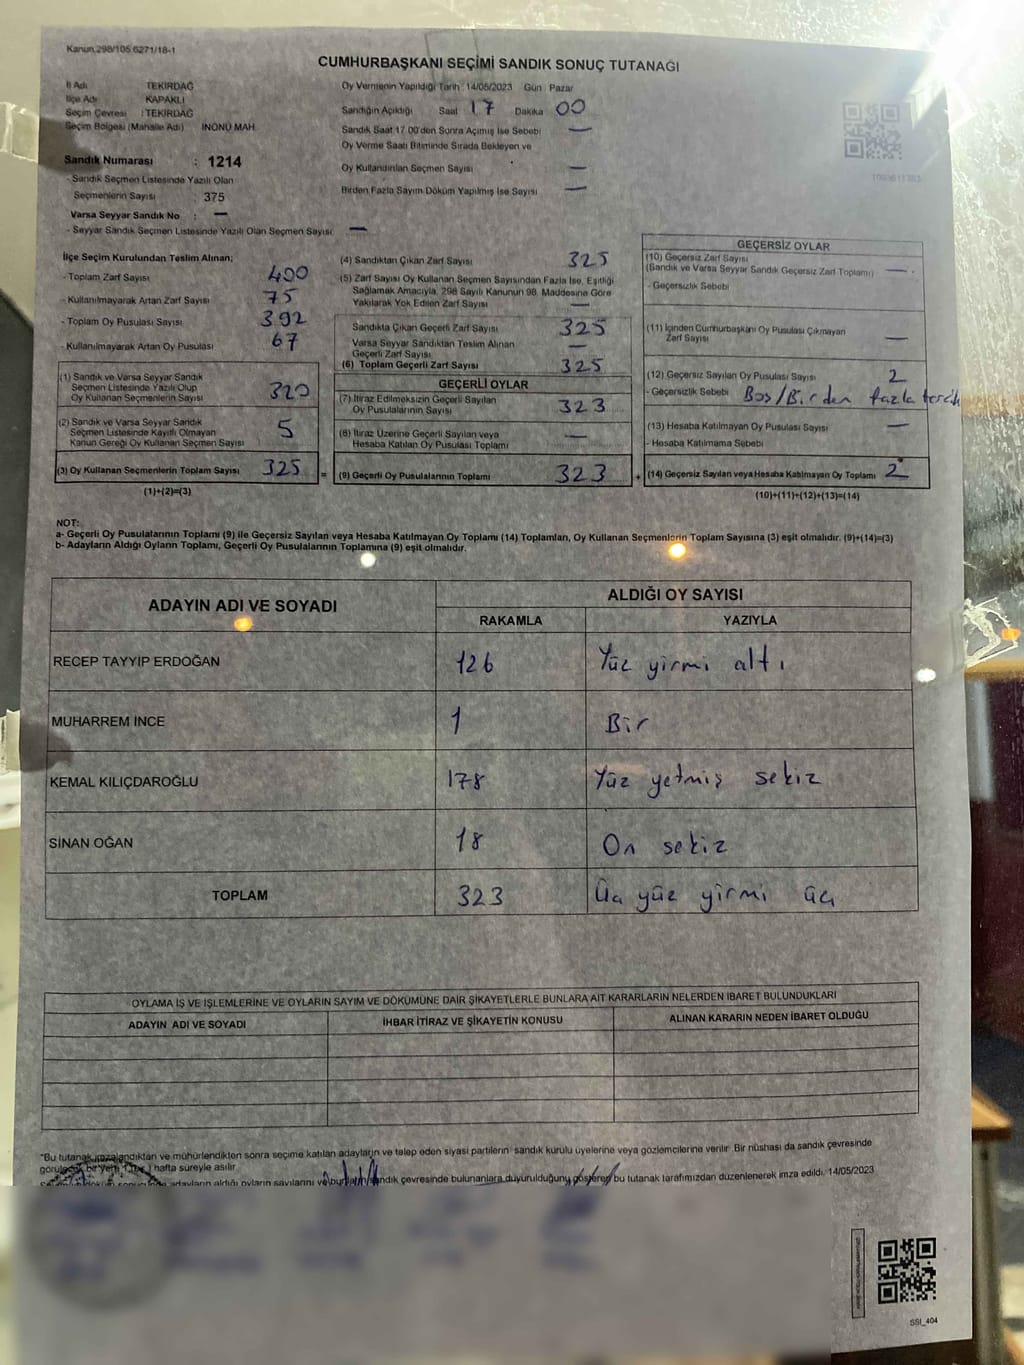 Kanun.298/105.6271/18-1
CUMHURBAŞKANI SEÇİMİ SANDIK SONUÇ TUTANAĞI
İl Adı TEKİRDAĞ
İlçe Adı KAPAKLI
Seçim Çevresi : TEKİRDAĞ
Seçim Bölgesi (Mahalle Adı) İNÖNÜ MAH.
Sandık Numarası : 1214
- Sandık Seçmen Listesinde Yazılı Olan
Seçmenlerin Sayısı 375
Varsa Seyyar Sandık No : —
- Seyyar Sandık Seçmen Listesinde Yazılı Olan Seçmen Sayısı: —
Oy Vermenin Yapıldığı Tarih : 14/05/2023 Gün : Pazar
Sandığın Açıldığı Saat 17 Dakika 00
Sandık Saat 17.00'den Sonra Açımış İse Sebebi —
Oy Verme Saati Bitiminde Sırada Bekleyen ve
Oy Kullandırılan Seçmen Sayısı —
Birden Fazla Sayım Döküm Yapılmış İse Sayısı —
İlçe Seçim Kurulundan Teslim Alınan;
- Toplam Zarf Sayısı 400
- Kullanılmayarak Artan Zarf Sayısı 75
- Toplam Oy Pusulası Sayısı 392
- Kullanılmayarak Artan Oy Pusulası 67
(1) Sandık ve Varsa Seyyar Sandık
Seçmen Listesinde Yazılı Olup
Oy Kullanan Seçmenlerin Sayısı 320
(2) Sandık ve Varsa Seyyar Sandık
Seçmen Listesinde Kayıtlı Olmayan
Kanun Gereği Oy Kullanan Seçmen Sayısı 5
(3) Oy Kullanan Seçmenlerin Toplam Sayısı 325 =
(1)+(2)=(3)
(4) Sandıktan Çıkan Zarf Sayısı 325
(5) Zarf Sayısı Oy Kullanan Seçmen Sayısından Fazla İse, Eşitliği
Sağlamak Amacıyla, 298 Sayılı Kanunun 98. Maddesine Göre
Yakılarak Yok Edilen Zarf Sayısı —
Sandıkta Çıkan Geçerli Zarf Sayısı 325
Varsa Seyyar Sandıktan Teslim Alınan
Geçerli Zarf Sayısı —
(6) Toplam Geçerli Zarf Sayısı 325
GEÇERLİ OYLAR
(7) İtiraz Edilmeksizin Geçerli Sayılan
Oy Pusulalarının Sayısı 323
(8) İtiraz Üzerine Geçerli Sayılan veya
Hesaba Katılan Oy Pusulası Toplamı —
(9) Geçerli Oy Pusulalarının Toplamı 323 +
GEÇERSİZ OYLAR
(10) Geçersiz Zarf Sayısı
(Sandık ve Varsa Seyyar Sandık Geçersiz Zarf Toplamı) —
- Geçersizlik Sebebi
(11) İçinden Cumhurbaşkanı Oy Pusulası Çıkmayan
Zarf Sayısı —
(12) Geçersiz Sayılan Oy Pusulası Sayısı 2
- Geçersizlik Sebebi Boş/Birden fazla tercih
(13) Hesaba Katılmayan Oy Pusulası Sayısı —
- Hesaba Katılmama Sebebi
(14) Geçersiz Sayılan veya Hesaba Katılmayan Oy Toplamı 2
(10)+(11)+(12)+(13)=(14)
NOT:
a- Geçerli Oy Pusulalarının Toplamı (9) ile Geçersiz Sayılan veya Hesaba Katılmayan Oy Toplamı (14) Toplamları, Oy Kullanan Seçmenlerin Toplam Sayısına (3) eşit olmalıdır. (9)+(14)=(3)
b- Adayların Aldığı Oyların Toplamı, Geçerli Oy Pusulalarının Toplamına (9) eşit olmalıdır.
ADAYIN ADI VE SOYADI ALDIĞI OY SAYISI
RAKAMLA YAZIYLA
RECEP TAYYİP ERDOĞAN 126 Yüz yirmi altı
MUHARREM İNCE 1 Bir
KEMAL KILIÇDAROĞLU 178 Yüz yetmiş sekiz
SİNAN OĞAN 18 On sekiz
TOPLAM 323 Üç yüz yirmi üç
OYLAMA İŞ VE İŞLEMLERİNE VE OYLARIN SAYIM VE DÖKÜMÜNE DAİR ŞİKAYETLERLE BUNLARA AİT KARARLARIN NELERDEN İBARET BULUNDUKLARI
ADAYIN ADI VE SOYADI İHBAR İTİRAZ VE ŞİKAYETİN KONUSU ALINAN KARARIN NEDEN İBARET OLDUĞU
"Bu tutanak imzalandıktan ve mühürlendikten sonra seçime katılan adayların ve talep eden siyasi partilerin sandık kurulu üyelerine veya gözlemcilerine verilir. Bir nüshası da sandık çevresinde
bir yere hafta süreyle asılır.
adayların aldığı oyların sayılarını ve sandık çevresinde bulunanlara duyurulduğunu gösteren bu tutanak tarafımızdan düzenlenerek imza edildi. 14/05/2023
SSI_404